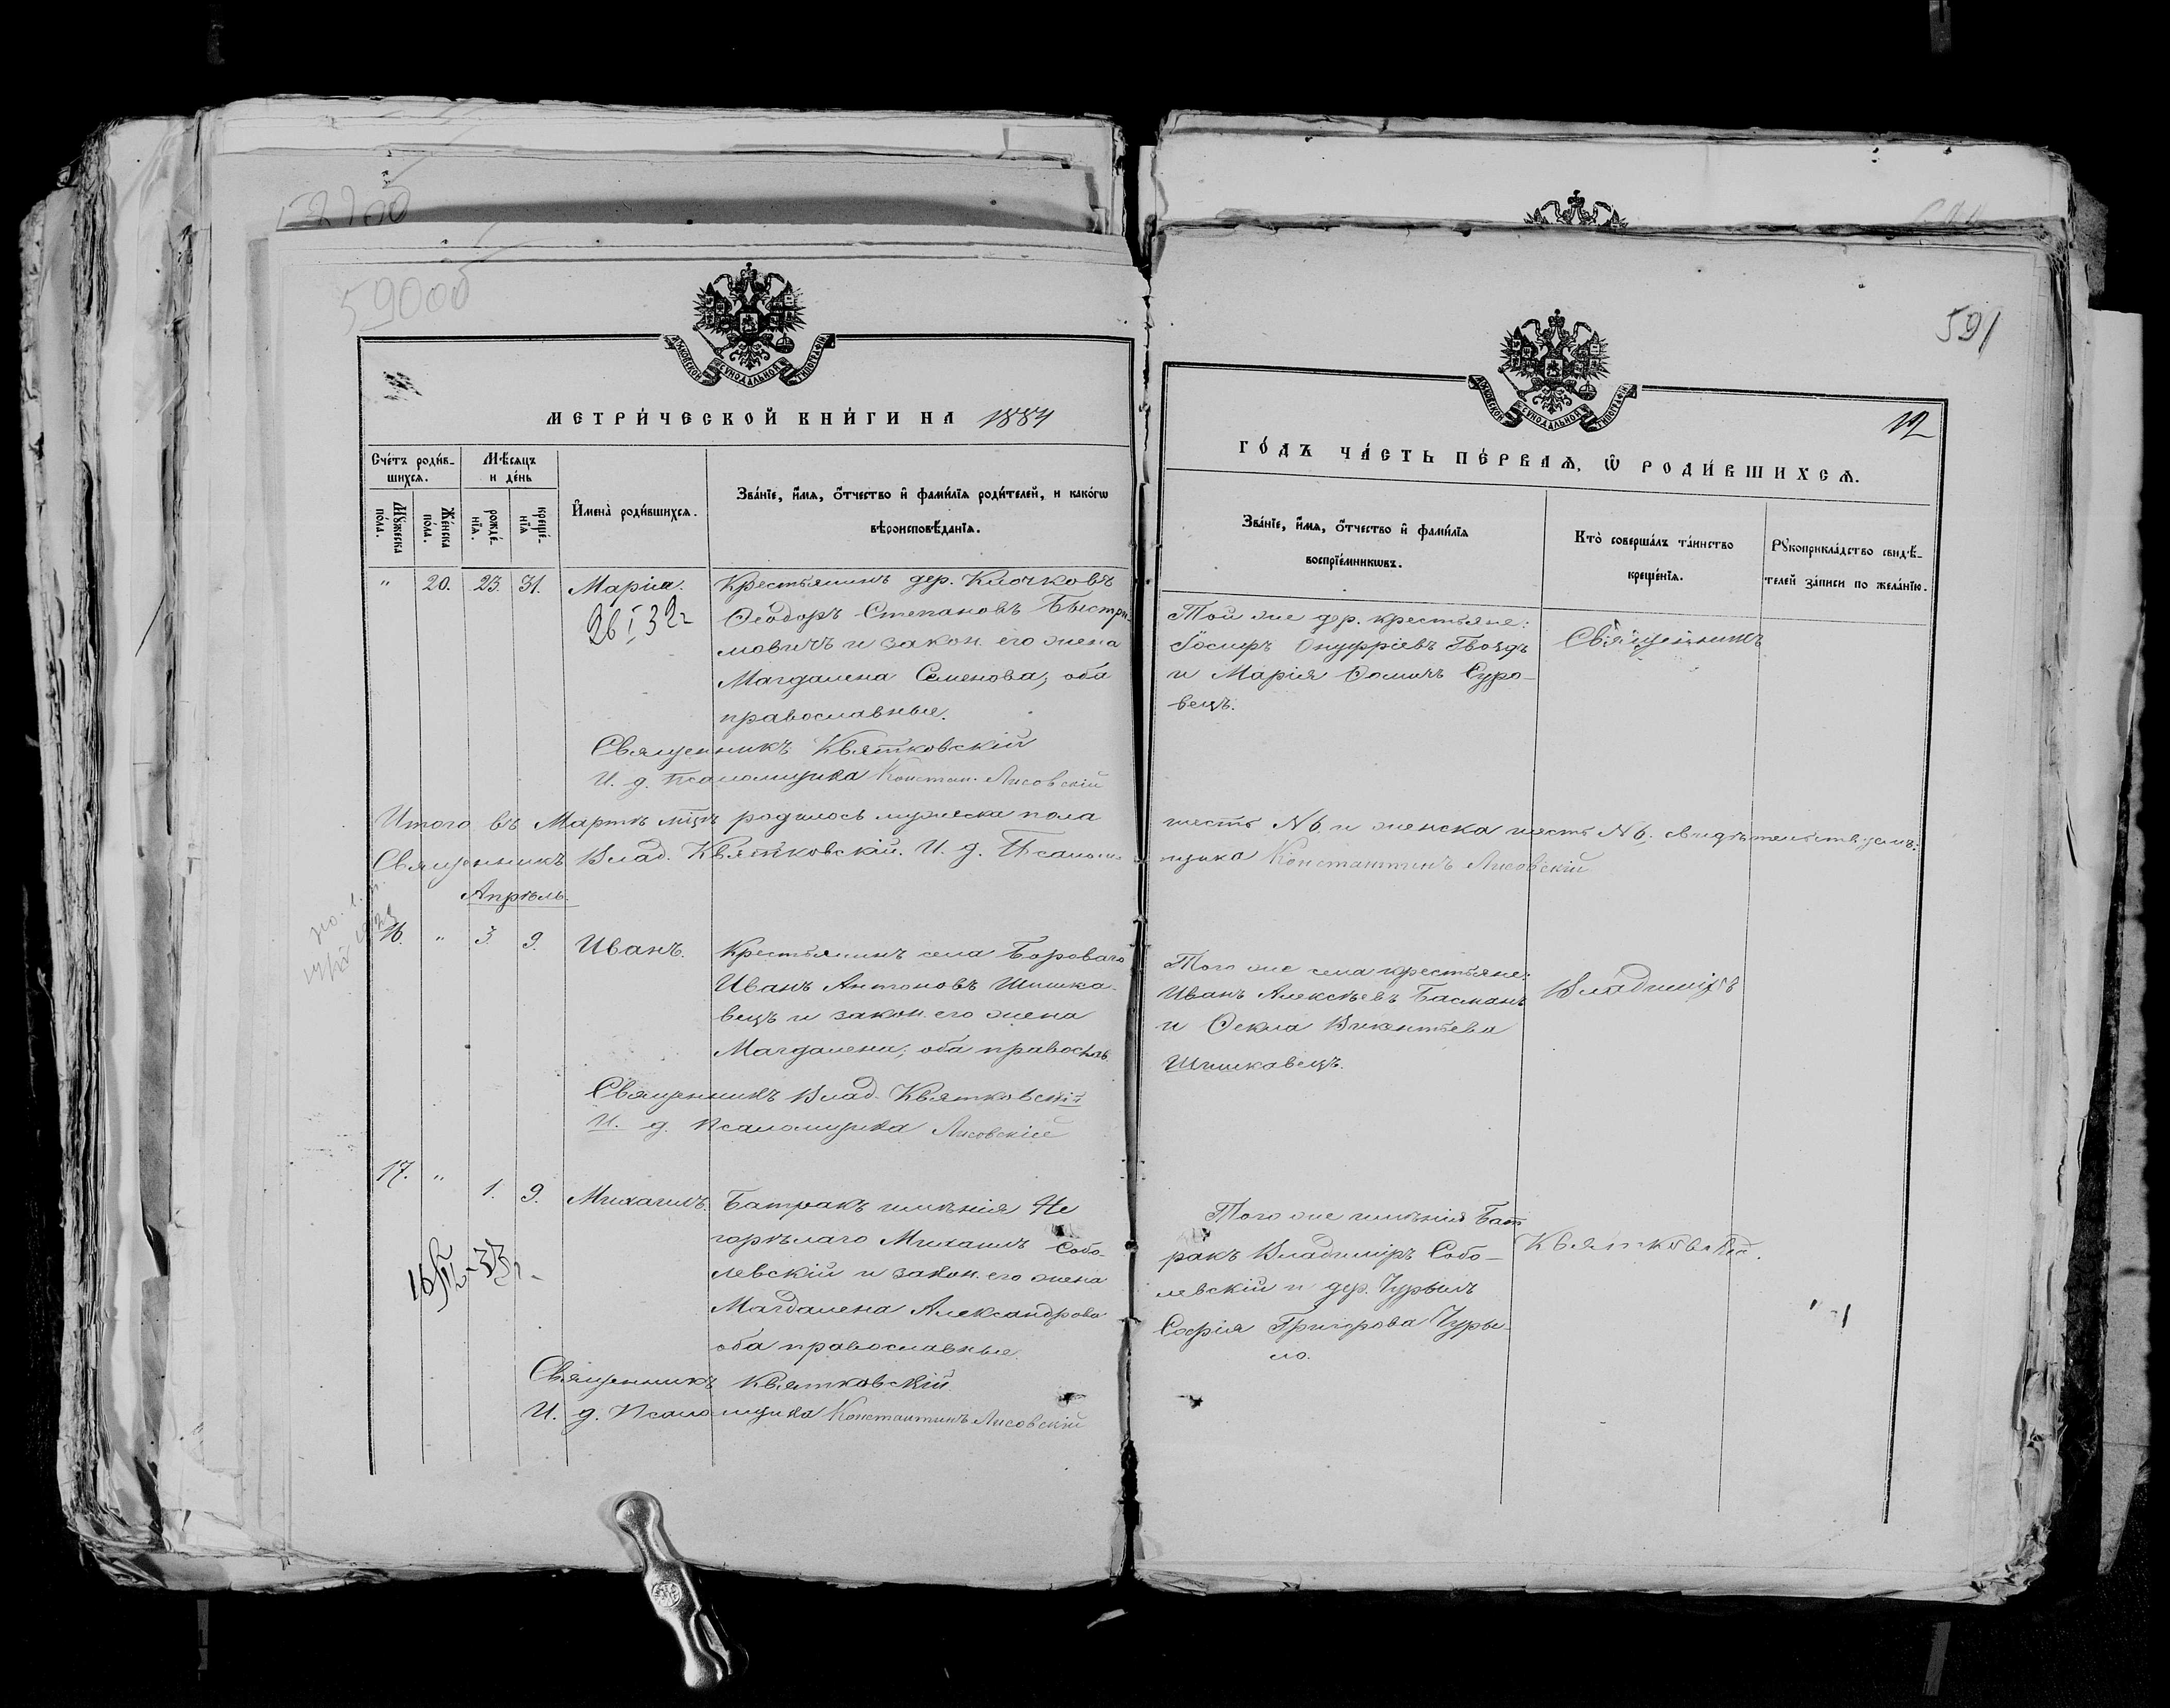 59006
МОСКОВСКОЙ СѴНОДАЛЬНОЙ ТИПОГРАФІИ
МЕТРИ́ЧЕСКОЙ КНИ́ГИ НА 1884
Сче́тъ роди́в-
шихся.
Мѣ́сяцъ
и де́нь
Мꙋ́жеска по́ла.
Же́нска по́ла.
рожде́-
нїѧ.
креще́-
нїѧ
И҆мена̀ роди́вшихся.
Зва́нїе, и҆́мѧ, ѻ҆́тчество и҆ фами́лїѧ роди́телей, и како́гѡ
вѣроисповѣ́данїѧ.
" 20. 23. 31. Марія.
26 I 32 г
Крестьянинъ дер. Клочковъ
Ѳеодоръ Степановъ Быстри-
мовичъ и закон. его жена
Магдалена Семенова, оба
православные.
Священникъ Квятковскій
И. д. Псаломщика Констан. Лисовскій
Итого въ Мартѣ мцѣ родилось мужеска пола
Священникъ Влад. Квятковскій. И. д. Псалом
Апрѣль.
16. " 3. 9. Иванъ.
Крестьянинъ села Бороваго
Иванъ Антоновъ Шишка-
вецъ и закон. его жена
Магдалена; оба правосл.
Священникъ Влад. Квятковскій
И. д. Псаломщика Лисовскій
17. " 1. 9. Михаилъ.
Батракъ имѣнія Не
горѣлаго Михаилъ Собо-
левскій и закон. его жена
Магдалена Александрова
оба православные.
Священникъ Квятковскій
И. д. Псаломщика Константинъ Лисовскій
591
МОСКОВСКОЙ СѴНОДАЛЬНОЙ ТИПОГРАФІИ
12
ГО́ДЪ ЧА́СТЬ ПЕ́РВАѦ, Ѡ҆ РОДИ́ВШИХСѦ.
Зва́нїе, и҆́мѧ, ѻ҆́тчество и҆ фами́лїѧ
воспрїе́мникѡвъ.
Кто̀ соверша́лъ та́инство
креще́нїѧ.
Рꙋкоприкла́дство свидѣ́-
телей за́писи по жела́нїю.
Той же дер. крестьяне:
Іосифъ Онуфріевъ Гвоздь
и Марія Ѳомичъ Суро-
вецъ.
Священникъ
шесть N 6. и женска шесть N 6. свидѣтельствуемъ:
щика Константинъ Лисовскій
Того же села крестьяне:
Иванъ Алексѣевъ Басманъ
и Ѳекла Викентьева
Шишкавецъ.
Владиміръ
Того же имѣнія Бат
ракъ Владиміръ Собо-
левскій и дер. Чурылъ
Софія Григорова Чуры-
ло.
Квятковскій.